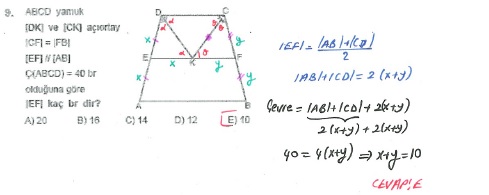 9. ABCD yamuk
[DK] ve [CK] açıortay
|CF| = |FB|
[EF] // [AB]
Ç(ABCD) = 40 br
olduğuna göre
|EF| kaç br dir?
A) 20 B) 16 C) 14 D) 12 E) 10
D C
α α θ θ
x y
E x α K θ y F
x y
A B
|EF| = |AB|+|CD| / 2
|AB|+|CD| = 2(x+y)
Çevre = |AB|+|CD| + 2(x+y)
2(x+y) + 2(x+y)
40 = 4(x+y) ⇒ x+y = 10
CEVAP: E